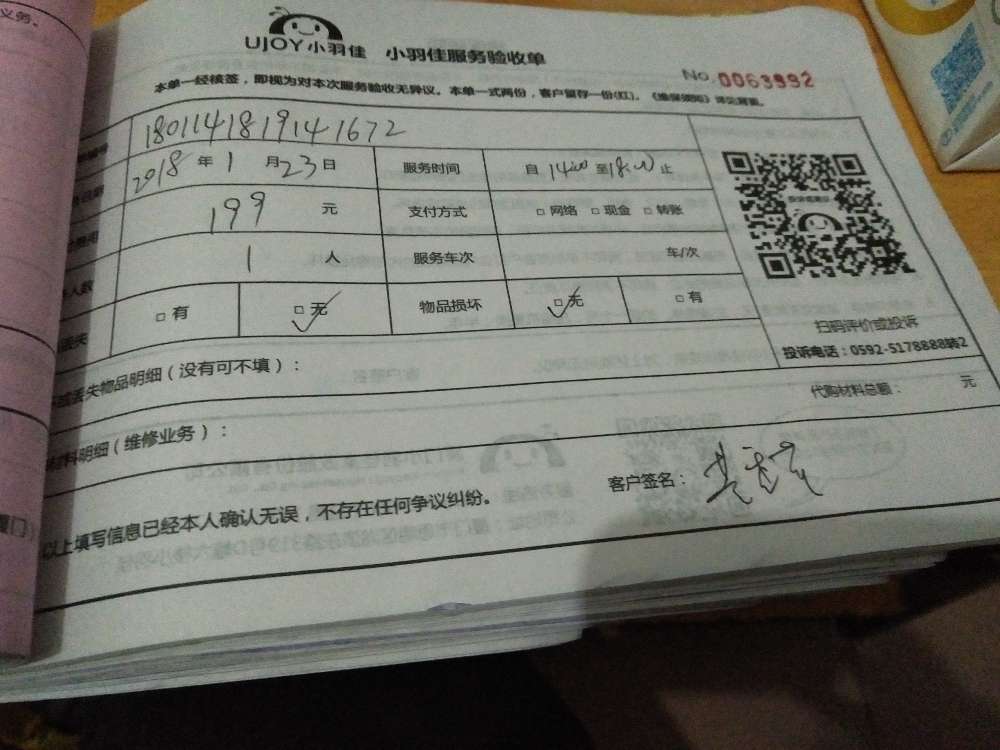 义务、
UJOY小羽佳 小羽佳服务验收单
No. 0063992
本单一经核签，即视为对本次服务验收无异议。本单一式两份，客户留存一份(红)。《维保须知》详见背面。
1801141819141672
2018年1月23日 服务时间 自14:00至18:00止
199元 支付方式 □网络 □现金 □转账
1人 服务车次 车/次
人数
□有 □无 物品损坏 □无 □有
丢失
扫码评价或投诉
投诉电话：0592-5178888转2
或丢失物品明细（没有可不填）：
代购材料总额： 元
材料明细（维修业务）：
客户签名：
以上填写信息已经本人确认无误，不存在任何争议纠纷。
厦门